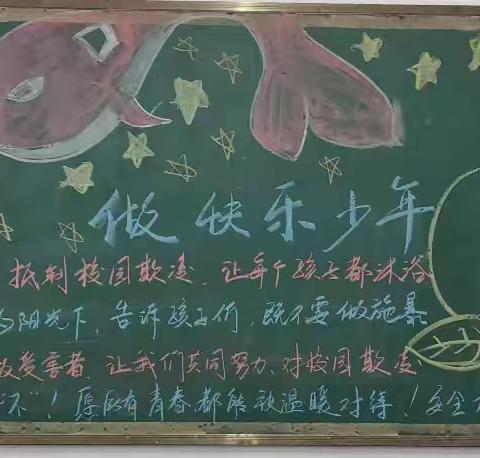 做快乐少年
抵制校园欺凌,让每个孩子都沐浴
阳光下,告诉孩子们,既不要做施暴
做受害者,让我们共同努力,对校园欺凌
"不"!愿所有青春都能被温暖对待!安全